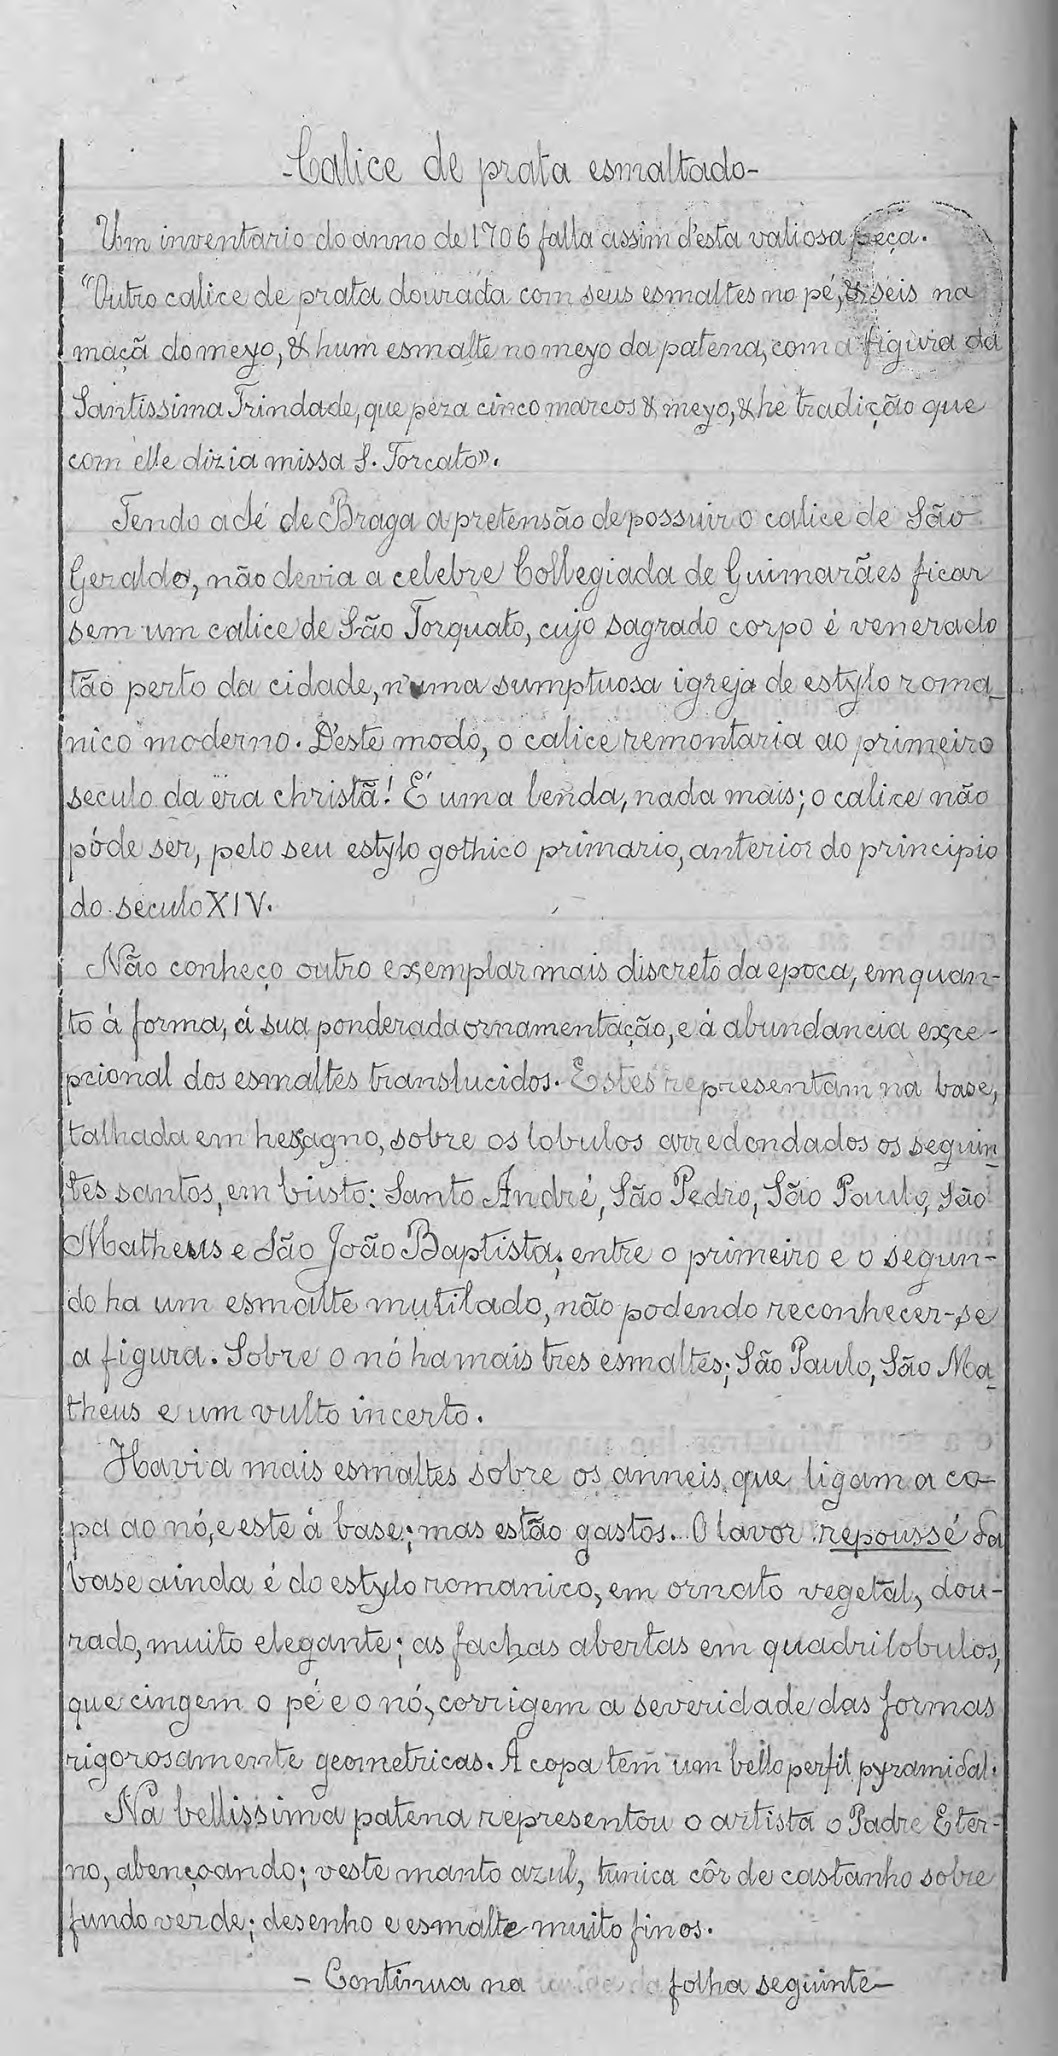 -Calice de prata esmaltado-
Um inventario do anno de 1706 falla assim d'esta valiosa peça.
"Outro calice de prata dourada com seus esmaltes no pé, & seis na
maçã do meyo, & hum esmalte no meyo da patena, com a figura da
Santissima Trindade, que peza cinco marcos & meyo, & he tradição que
com elle dizia missa S. Torcato».
Tendo a Sé de Braga a pretensão de possuir o calice de São
Geraldo, não devia a celebre Collegiada de Guimarães ficar
sem um calice de São Torquato, cujo sagrado corpo é venerado
tão perto da cidade, n'uma sumptuosa igreja de estylo roma-
nico moderno. D'este modo, o calice remontaria ao primeiro
seculo da era christã! É uma lenda, nada mais; o calice não
póde ser, pelo seu estylo gothico primario, anterior do principio
do seculo XIV.
Não conheço outro exemplar mais discreto da epoca, emquan-
to á forma, á sua ponderada ornamentação, e á abundancia exce-
pcional dos esmaltes translucidos. Estes representam na base,
talhada em hexagno, sobre os lobulos arredondados os seguin-
tes santos, em busto: Santo André, São Pedro, São Paulo, São
Matheus e São João Baptista; entre o primeiro e o segun-
do ha um esmalte mutilado, não podendo reconhecer-se
a figura. Sobre o nó ha mais tres esmaltes; São Paulo, São Ma-
theus e um vulto incerto.
Havia mais esmaltes sobre os anneis, que ligam a co-
pa ao nó, e este á base; mas estão gastos. O lavor repoussé da
base ainda é do estylo romanico, em ornato vegetal, dou-
rado, muito elegante; as fachas abertas em quadrilobulos,
que cingem o pé e o nó, corrigem a severidade das formas
rigorosamente geometricas. A copa tem um bello perfil pyramidal.
Na bellissima patena representou o artista o Padre Eter-
no, abençoando; veste manto azul, tunica côr de castanho sobre
fundo verde; desenho e esmalte muito finos.
- Continua na folha seguinte-